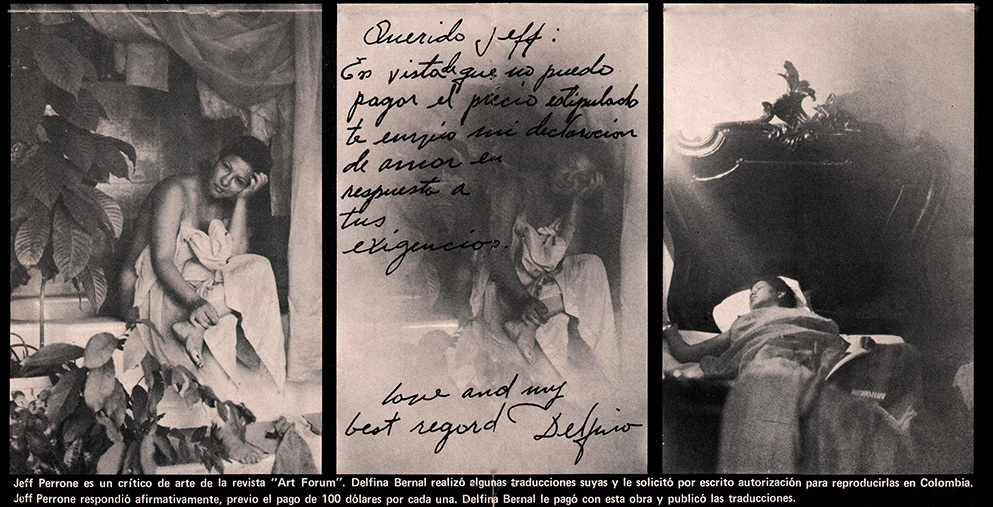 Querido Jeff:
En vista de que no puedo
pagar el precio estipulado
te envio mi declaracion
de amor en
respuesta a
tus
exigencias.
love and my
best regard Delfina
Jeff Perrone es un crítico de arte de la revista "Art Forum". Delfina Bernal realizó algunas traducciones suyas y le solicitó por escrito autorización para reproducirlas en Colombia.
Jeff Perrone respondió afirmativamente, previo el pago de 100 dólares por cada una. Delfina Bernal le pagó con esta obra y publicó las traducciones.